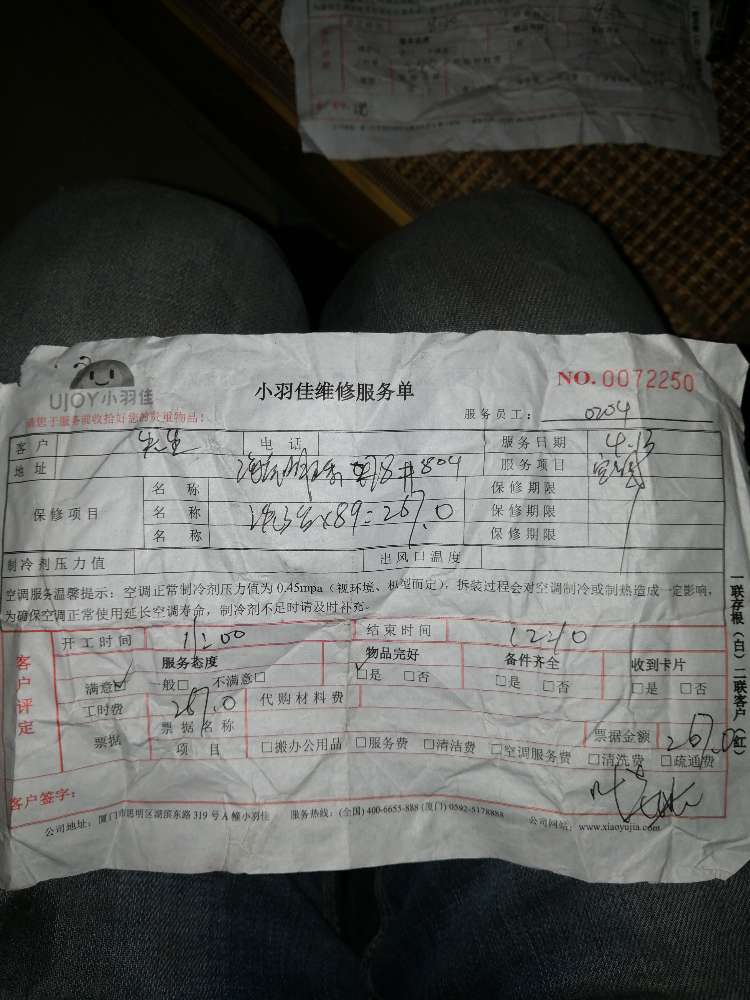 UJOY小羽佳
小羽佳维修服务单
NO. 0072250
请您于服务前收拾好您的贵重物品!
服务员工: 0204
客户 先生 电话 服务日期 4.13
地址 8#804 服务项目
保修项目 名称 保修期限
名称 x89=267.0 保修期限
名称 保修期限
制冷剂压力值 出风口温度
空调服务温馨提示: 空调正常制冷剂压力值为 0.45mpa (视环境、机型而定), 拆装过程会对空调制冷或制热造成一定影响,
为确保空调正常使用延长空调寿命, 制冷剂不足时请及时补充。
客户评定
开工时间 11:00 结束时间
服务态度 物品完好 备件齐全 收到卡片
满意☑ 一般□ 不满意□ ☑是 □否 □是 □否 □是 □否
工时费 267.0 代购材料费
票据 票据名称 票据金额 267.0
项目 □搬办公用品 □服务费 □清洁费 □空调服务费 □清洗费 □疏通费
客户签字:
公司地址: 厦门市思明区湖滨东路 319 号 A 幢小羽佳 服务热线: (全国) 400-6655-888 (厦门) 0592-5178888 公司网站: www.xiaoyujia.com
一联存根(白) 二联客户(红)